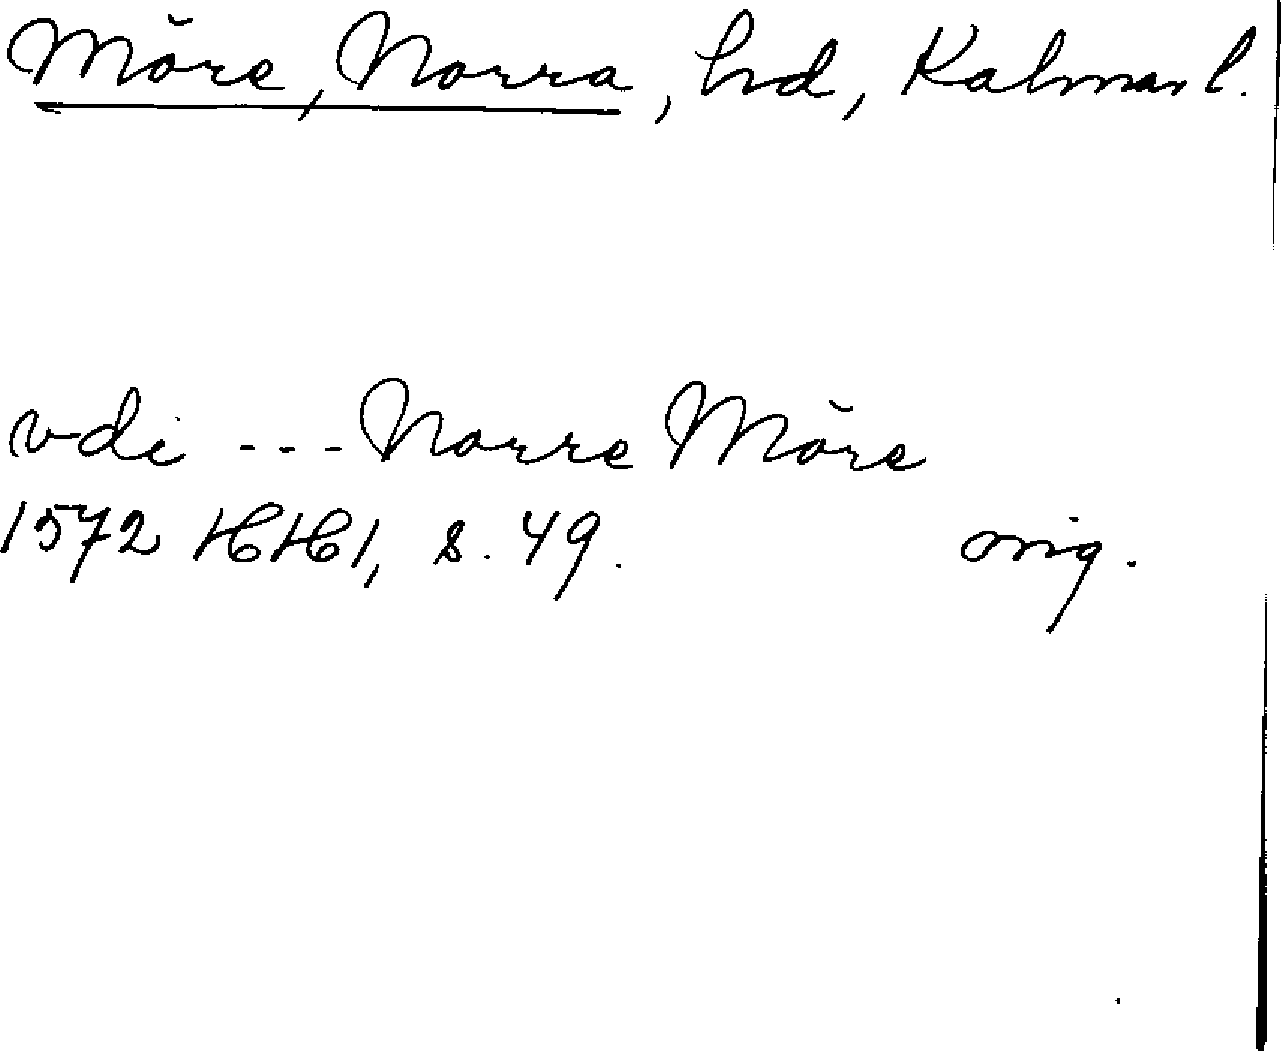 Möre, Norra, hd, Kalmar l.
vdi --- Norre Möre
1572 HH1, s. 49. orig.